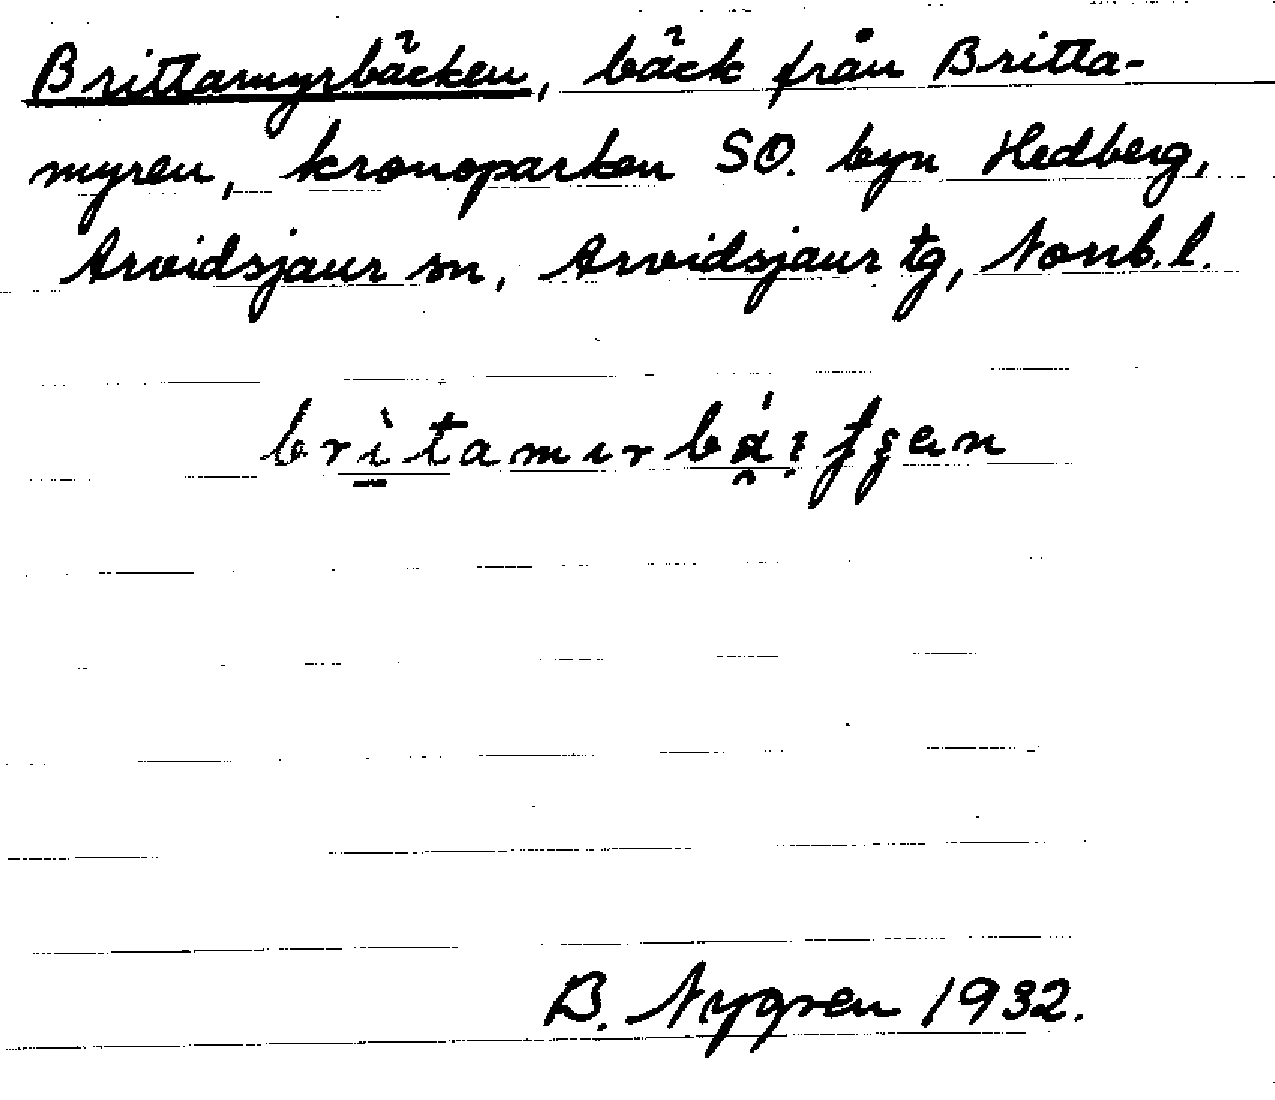 Brittamyrbäcken, bäck från Britta-
myren, kronoparken SO. byn Hedberg,
Arvidsjaur sn, Arvidsjaur tg, Norrb. l.
B. Nygren 1932.